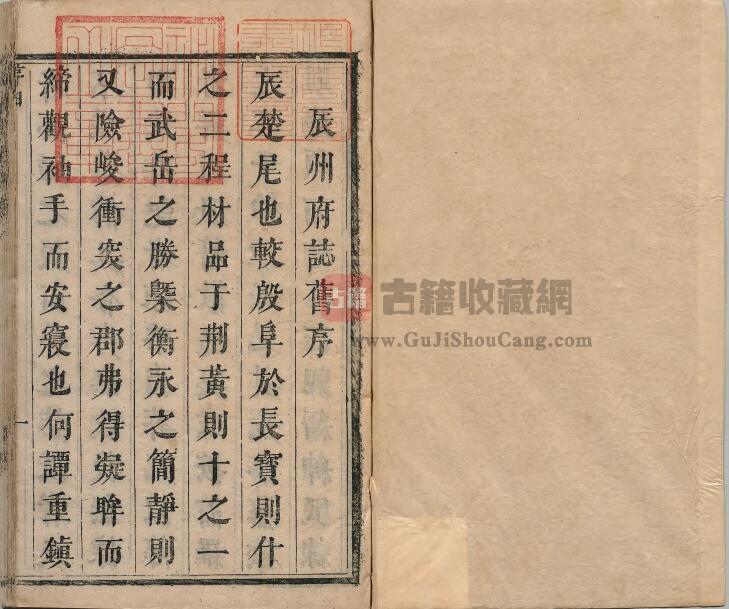 辰州府誌舊序
辰楚尾也較殷阜於長寶則什
之二程材品于荆黃則十之一
而武岳之勝槩衡永之簡靜則
又險峻衝突之郡弗得凝眸而
締觀袖手而安寢也何譚重鎮
序
一
古籍
古籍收藏網
www.GuJiShouCang.com